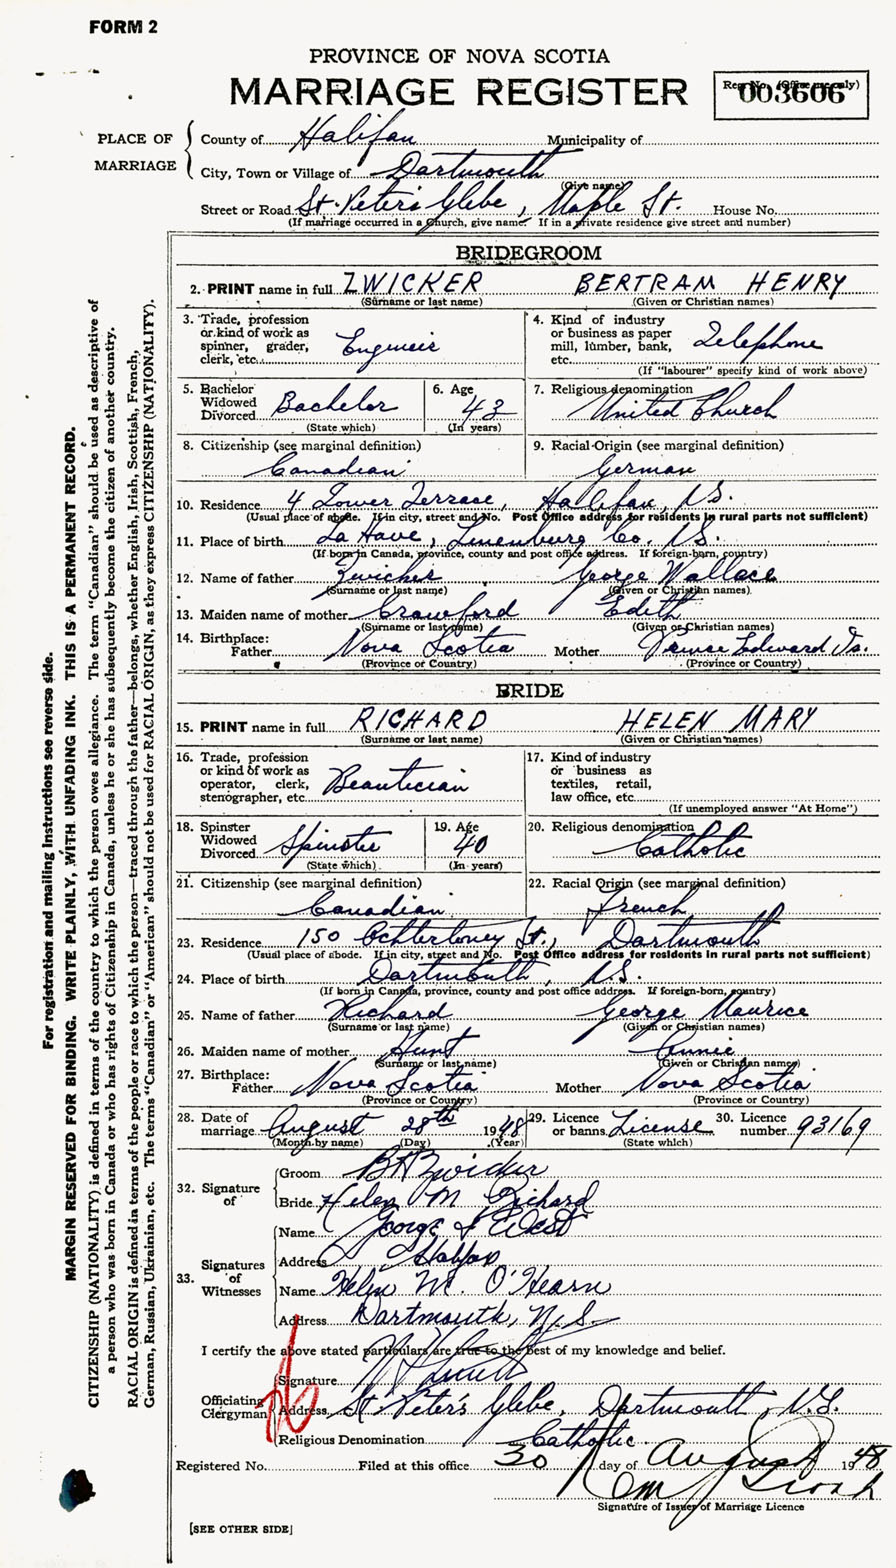 FORM 2
PROVINCE OF NOVA SCOTIA
MARRIAGE REGISTER
Reg. No. (Office use only)
003606
PLACE OF MARRIAGE
County of Halifax Municipality of
City, Town or Village of Dartmouth
(Give name)
Street or Road St. Peter's Glebe, Maple St. House No.
(If marriage occurred in a church, give name. If in a private residence give street and number)
BRIDEGROOM
2. PRINT name in full ZWICKER BERTRAM HENRY
(Surname or last name) (Given or Christian names)
3. Trade, profession or kind of work as spinner, grader, clerk, etc. Engineer
4. Kind of industry or business as paper mill, lumber, bank, etc. Telephone
(If "labourer" specify kind of work above)
5. Bachelor Widowed Divorced Bachelor
(State which)
6. Age 43
(In years)
7. Religious denomination United Church
8. Citizenship (see marginal definition) Canadian
9. Racial Origin (see marginal definition) German
10. Residence 4 Lower Terrace, Halifax, N.S.
(Usual place of abode. If in city, street and No. Post Office address for residents in rural parts not sufficient)
11. Place of birth La Have, Lunenburg Co. N.S.
(If born in Canada, province, county and post office address. If foreign-born, country)
12. Name of father Zwicker George Wallace
(Surname or last name) (Given or Christian names)
13. Maiden name of mother Crawford Edith
(Surname or last name) (Given or Christian names)
14. Birthplace:
Father Nova Scotia Mother Prince Edward Is.
(Province or Country) (Province or Country)
BRIDE
15. PRINT name in full RICHARD HELEN MARY
(Surname or last name) (Given or Christian names)
16. Trade, profession or kind of work as operator, clerk, stenographer, etc. Beautician
17. Kind of industry or business as textiles, retail, law office, etc.
(If unemployed answer "At Home")
18. Spinster Widowed Divorced Spinster
(State which)
19. Age 40
(In years)
20. Religious denomination Catholic
21. Citizenship (see marginal definition) Canadian
22. Racial Origin (see marginal definition) French
23. Residence 150 Ochterloney St., Dartmouth
(Usual place of abode. If in city, street and No. Post Office address for residents in rural parts not sufficient)
24. Place of birth Dartmouth, N.S.
(If born in Canada, province, county and post office address. If foreign-born, country)
25. Name of father Richard George Maurice
(Surname or last name) (Given or Christian names)
26. Maiden name of mother Hunt Annie
(Surname or last name) (Given or Christian names)
27. Birthplace:
Father Nova Scotia Mother Nova Scotia
(Province or Country) (Province or Country)
28. Date of marriage August 28th 1948
(Month by name) (Day) (Year)
29. Licence or banns License
(State which)
30. Licence number 93169
32. Signature of
Groom B H Zwicker
Bride Helen M Richard
33. Signatures of Witnesses
Name George F West
Address Halifax
Name Helen M. O'Hearn
Address Dartmouth, N.S.
I certify the above stated particulars are true to the best of my knowledge and belief.
Officiating Clergyman
Signature
Address St Peter's Glebe, Dartmouth, N.S.
Religious Denomination Catholic
Registered No. Filed at this office 30 day of August 1948
Signature of Issuer of Marriage Licence
[SEE OTHER SIDE]
For registration and mailing instructions see reverse side.
MARGIN RESERVED FOR BINDING. WRITE PLAINLY, WITH UNFADING INK. THIS IS A PERMANENT RECORD.
CITIZENSHIP (NATIONALITY) is defined in terms of the country to which the person owes allegiance. The term "Canadian" should be used as descriptive of
a person who was born in Canada or who has rights of Citizenship in Canada, unless he or she has subsequently become the citizen of another country.
RACIAL ORIGIN is defined in terms of the people or race to which the person—traced through the father—belongs, whether English, Irish, Scottish, French,
German, Russian, Ukrainian, etc. The terms "Canadian" or "American" should not be used for RACIAL ORIGIN, as they express CITIZENSHIP (NATIONALITY).